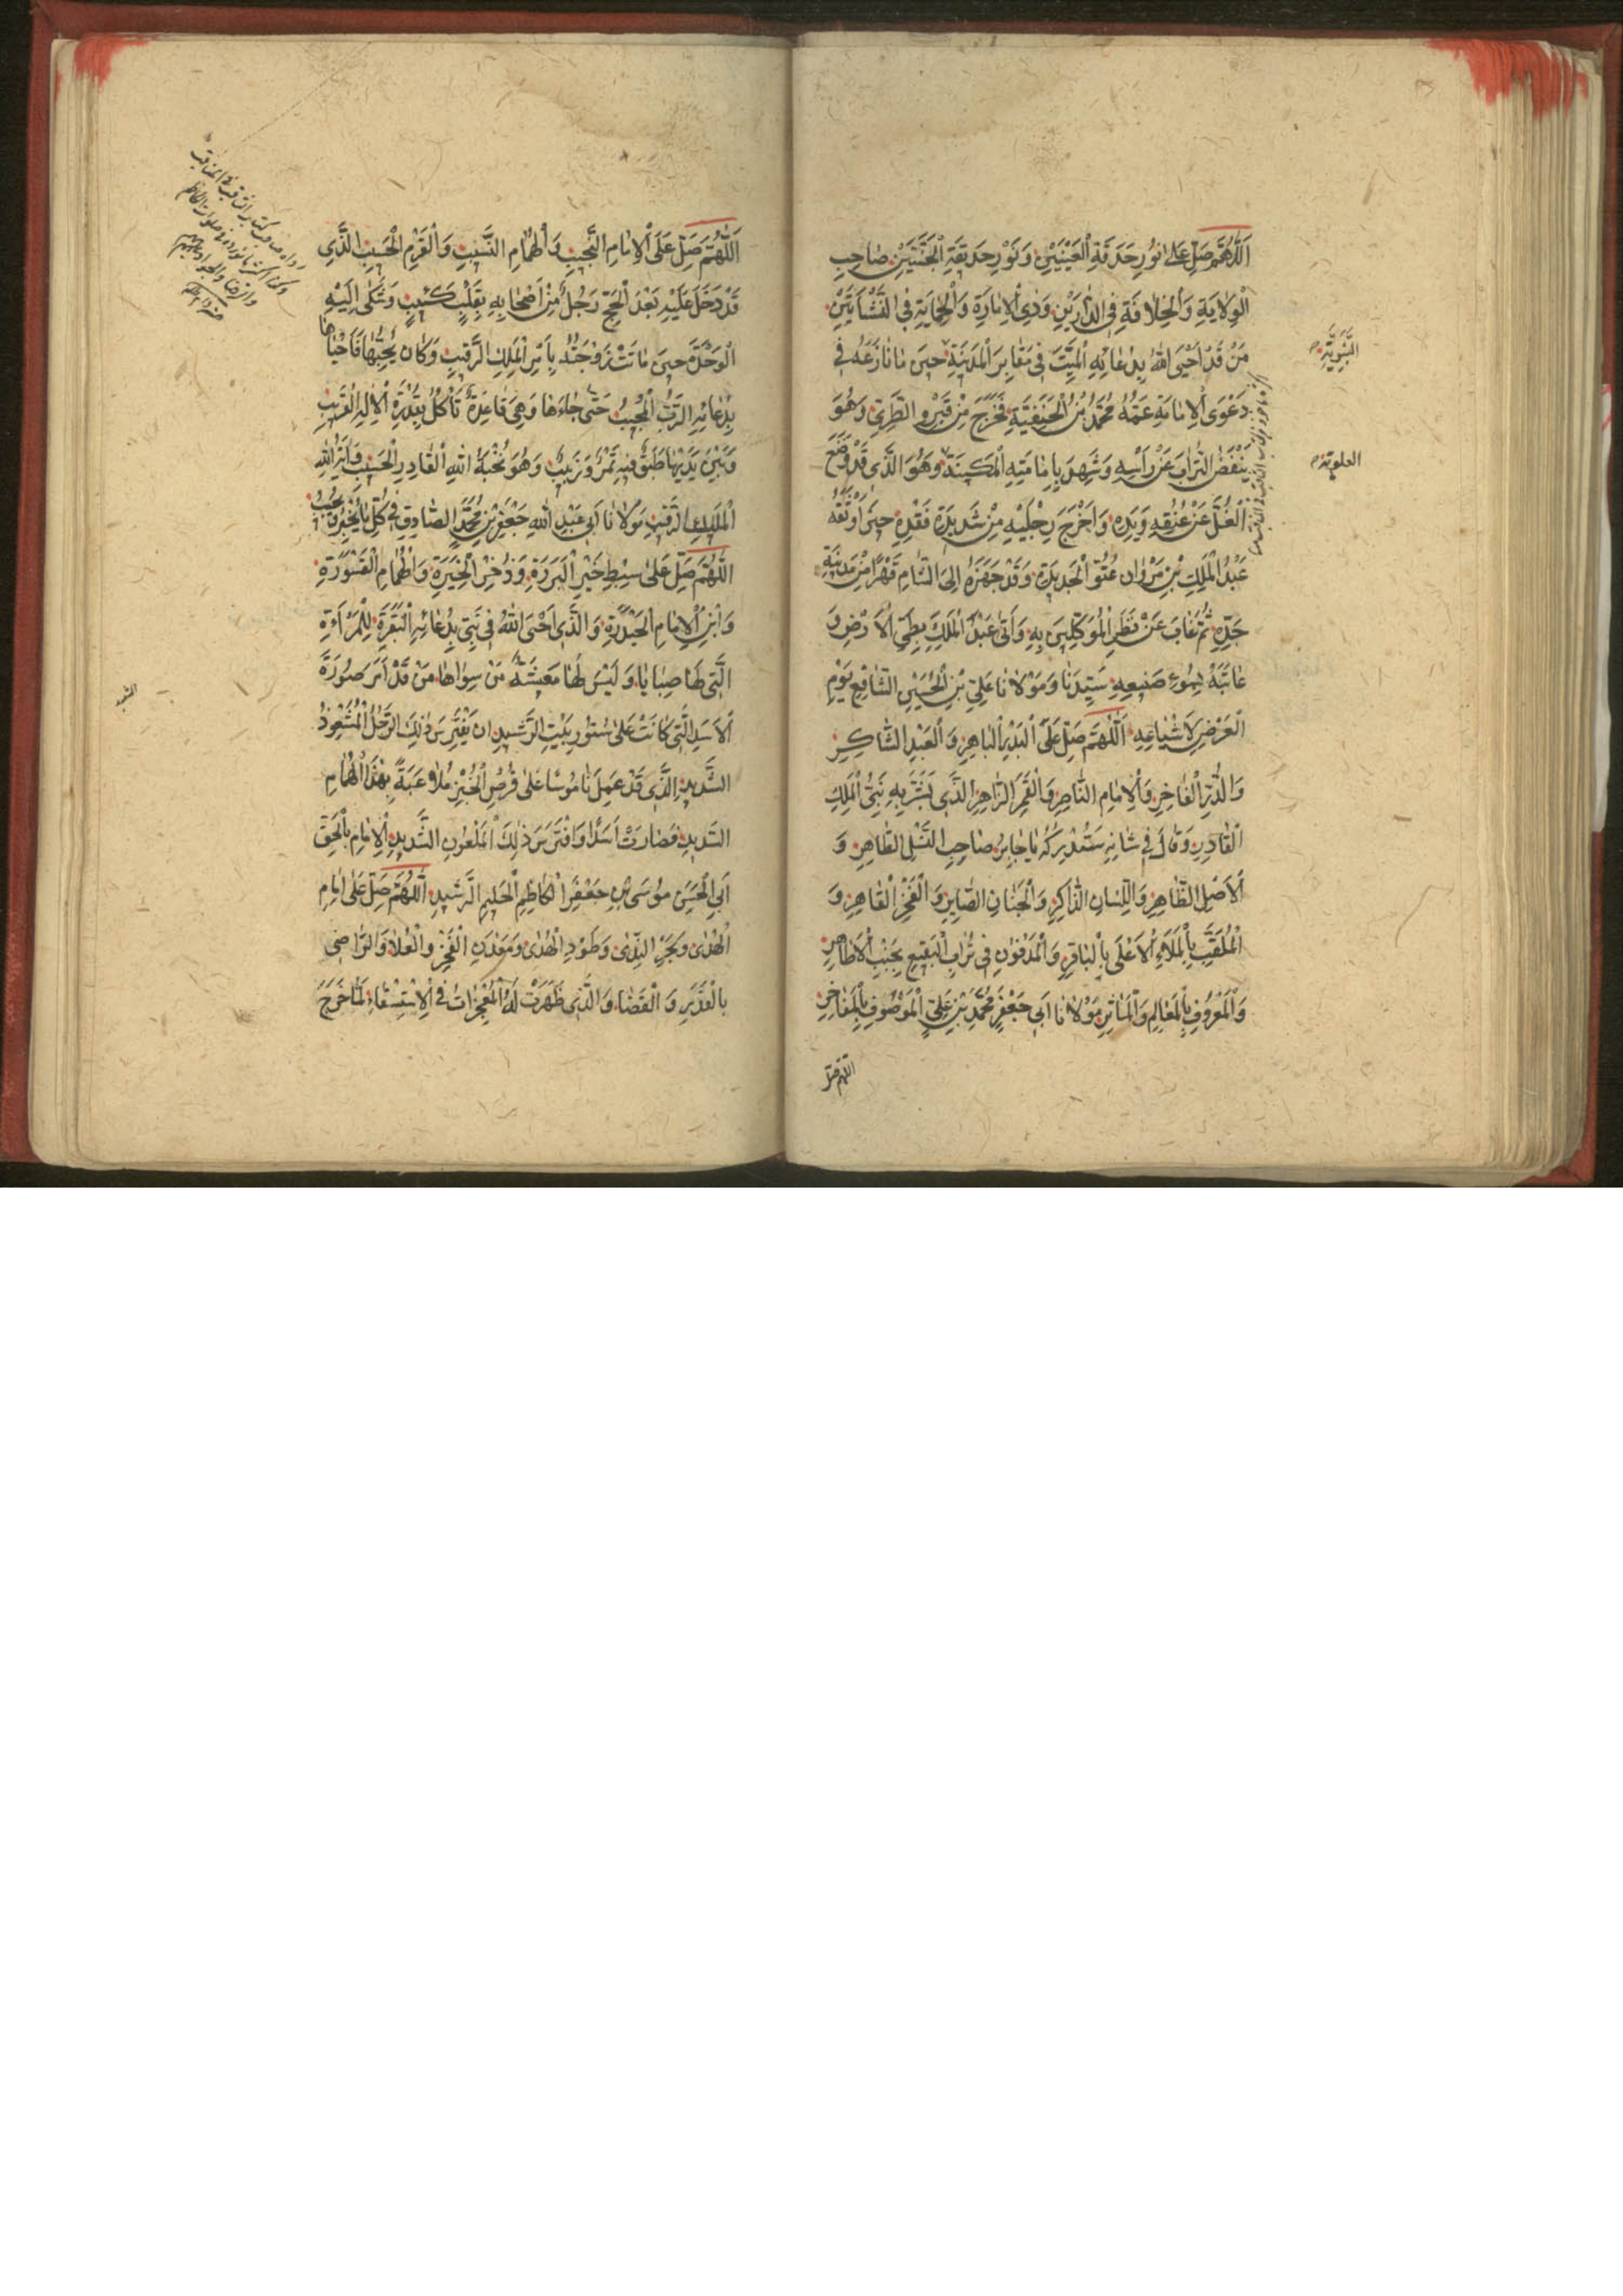 اَللّٰهُمَّ صَلِّ عَلٰى نُورِ حَدَقَةِ الْعَيْنَيْنِ وَنَوْرِ حَدِيقَةِ الْجَنَّتَيْنِ صَاحِبِ
الْوِلَايَةِ وَالْخِلَافَةِ فِي الدَّارَيْنِ وَذِي الْاِمَارَةِ وَالْحِمَايَةِ فِي النَّشْأَتَيْنِ
مَنْ قَدْ اَحْيَى اللّٰهُ بِدُعَائِهِ الْمَيِّتَ فِي مَقَابِرَ الْمَدِينَةِ حِينَ مَا نَازَعَهُ فِي
النَّبَوِيَّةِ
دَعْوَى الْاِمَامَةِ عَمُّهُ مُحَمَّدُ بْنُ الْحَنَفِيَّةِ فَخَرَجَ مِنْ قَبْرِهِ الطَّرِيِّ وَهُوَ
يَنْفَضُ التُّرَابَ عَنْ رَاْسِهِ وَشَهِدَ بِاِمَامَتِهِ الْمَكِينَةِ وَهُوَ الَّذِي قَدْ وَضَعَ
العلوية
الْغُلَّ عَنْ عُنُقِهِ وَيَدِهِ وَاَخْرَجَ رِجْلَيْهِ مِنْ شَدِيدَةِ قَيْدِهِ حِينَ اَوْثَقَهُ
عَبْدُ الْمَلِكِ بْنِ مَرْوَانَ عُتُوِّ الْحَدِيدَةِ وَقَدْ جَهَزَهُ اِلَى الشَّامِ قَهْرًا مِنْ مَدِينَةِ
جَدِّهِ ثُمَّ غَابَ عَنْ نَظَرِ الْمُوَكِّلِينَ بِهِ وَاَتَى عَبْدَ الْمَلِكِ بِطَيِّ الْاَرْضِ وَ
عَاتَبَهُ بِسُوءِ صَنِيعِهِ سَيِّدِنَا وَمَوْلَانَا عَلِيِّ بْنِ الْحُسَيْنِ الشَّافِعِ يَوْمِ
الْعَرْضِ لِاَشْيَاعِهِ اَللّٰهُمَّ صَلِّ عَلَى الْبَدْرِ الْبَاهِرِ وَالْعَبْدِ الشَّاكِرِ
وَالدُّرِّ الْفَاخِرِ وَالْاِمَامِ النَّاصِرِ وَالْقَمَرِ الزَّاهِرِ الَّذِي بَشَّرَ بِهِ نَبِيُّ الْمَلِكِ
الْقَادِرِ وَقَالَ فِي شَانِهِ سَتُدْرِكُهُ يَا جَابِرُ صَاحِبِ النَّسْلِ الطَّاهِرِ وَ
اَلْاَصْلِ الظَّاهِرِ وَاللِّسَانِ الذَّاكِرِ وَالْجَنَانِ الصَّابِرِ وَالْفَخْرِ الْقَاهِرِ وَ
الْمُلَقَّبِ بِالْمَلَاءِ الْاَعْلَى بِالْبَاقِرِ وَالْمَدْفُونِ فِي تُرَابِ الْبَقِيعِ بِجَنْبِ الْاَطَاهِرِ
وَالْمَعْرُوفِ بِالْمَعَالِمِ وَالْمَآثِرِ مَوْلَانَا اَبِي جَعْفَرٍ مُحَمَّدِ بْنِ عَلِيٍّ الْمَوْصُوفِ بِالْمَفَاخِرِ
اللهم صل
اَللّٰهُمَّ صَلِّ عَلَى الْاِمَامِ النَّجِيبِ وَالْهُمَامِ النَّسِيبِ وَالْقَرْمِ الْحَسِيبِ الَّذِي
قَدْ دَخَلَ عَلَيْهِ بَعْدَ الْحَجِّ رَجُلٌ مِنْ اَصْحَابِهِ بِقَلْبٍ كَئِيبٍ وَشَكَى اِلَيْهِ
الْوَحْدَةَ حِينَ مَاتَتْ زَوْجَتُهُ بِاَمْرِ الْمَلِكِ الرَّقِيبِ وَكَانَ يُحِبُّهَا فَاَحْيَاهَا
بِدُعَائِهِ الرَّبُّ الْمُجِيبُ حَتّٰى جَاءَهَا وَهِيَ قَاعِدَةٌ تَاْكُلُ بِقُدْرَةِ الْاِلٰهِ الْقَرِيبِ
وَبَيْنَ يَدَيْهَا طَبَقٌ فِيهِ تَمْرٌ وَزَبِيبٌ وَهُوَ نُخْبَةُ اللهِ الْقَادِرِ الْحَسِيبِ وَاَمْرُ اللهِ
الْمَلِكِ الرَّقِيبِ مَوْلَانَا اَبِي عَبْدِ اللّٰهِ جَعْفَرِ بْنِ مُحَمَّدٍ الصَّادِقِ فِي كُلِّ مَا يُخْبِرُ وَيُجِيبُ
اَللّٰهُمَّ صَلِّ عَلَى سِبْطِ خَيْرِ الْبَرَرَةِ وَذُخْرِ الْخِيَرَةِ وَالْهُمَامِ الْقَسْوَرَةِ
وَابْنِ الْاِمَامِ الْحَيْدَرَةِ وَالَّذِي اَحْيَ اللّٰهُ فِي بَنِي بِدُعَائِهِ الْبَقَرَةَ لِلْمَرْاَةِ
الَّتِي لَهَا صِبَايَا وَلَيْسَ لَهَا مَعِيشَةٌ مَنْ سِوَاهَا مَنْ قَدْ اَمَرَ صُورَةَ
الْاَسَدِ الَّتِي كَانَتْ عَلٰى سُتُورِ بَيْتِ الرَّشِيدِ اَنْ يَفْتَرِسَ ذٰلِكَ الرَّجُلَ الْمُشَعْوِذَ
الشَّدِيدِ الَّذِي قَدْ عَمِلَ نَامُوسًا عَلٰى قُرْصِ الْخُبْزِ مُلَاعَبَةً بِهٰذَا الْهُمَامِ
السَّدِيدِ فَصَارَتْ اَسَدًا وَافْتَرَسَ ذٰلِكَ الْمَلْعُونِ الشَّدِيدِ الْاِمَامِ بِالْحَقِّ
اَبِي الْحَسَنِ مُوسَى بْنِ جَعْفَرٍ الْكَاظِمِ الْحَلِيمِ الرَّشِيدِ اَللّٰهُمَّ صَلِّ عَلٰى اِمَامِ
الْهُدٰى وَبَحْرِ النَّدٰى وَطَوْدِ الْهُدٰى وَمَعْدَنِ الْفَخْرِ وَالْعُلَا وَالرَّاضِي
بِالْقَدَرِ وَالْقَضَاءِ وَالَّذِي ظَهَرَتْ لَهُ الْمُعْجِزَاتُ فِي الْاِسْتِسْقَاءِ لَمَّا خَرَجَ